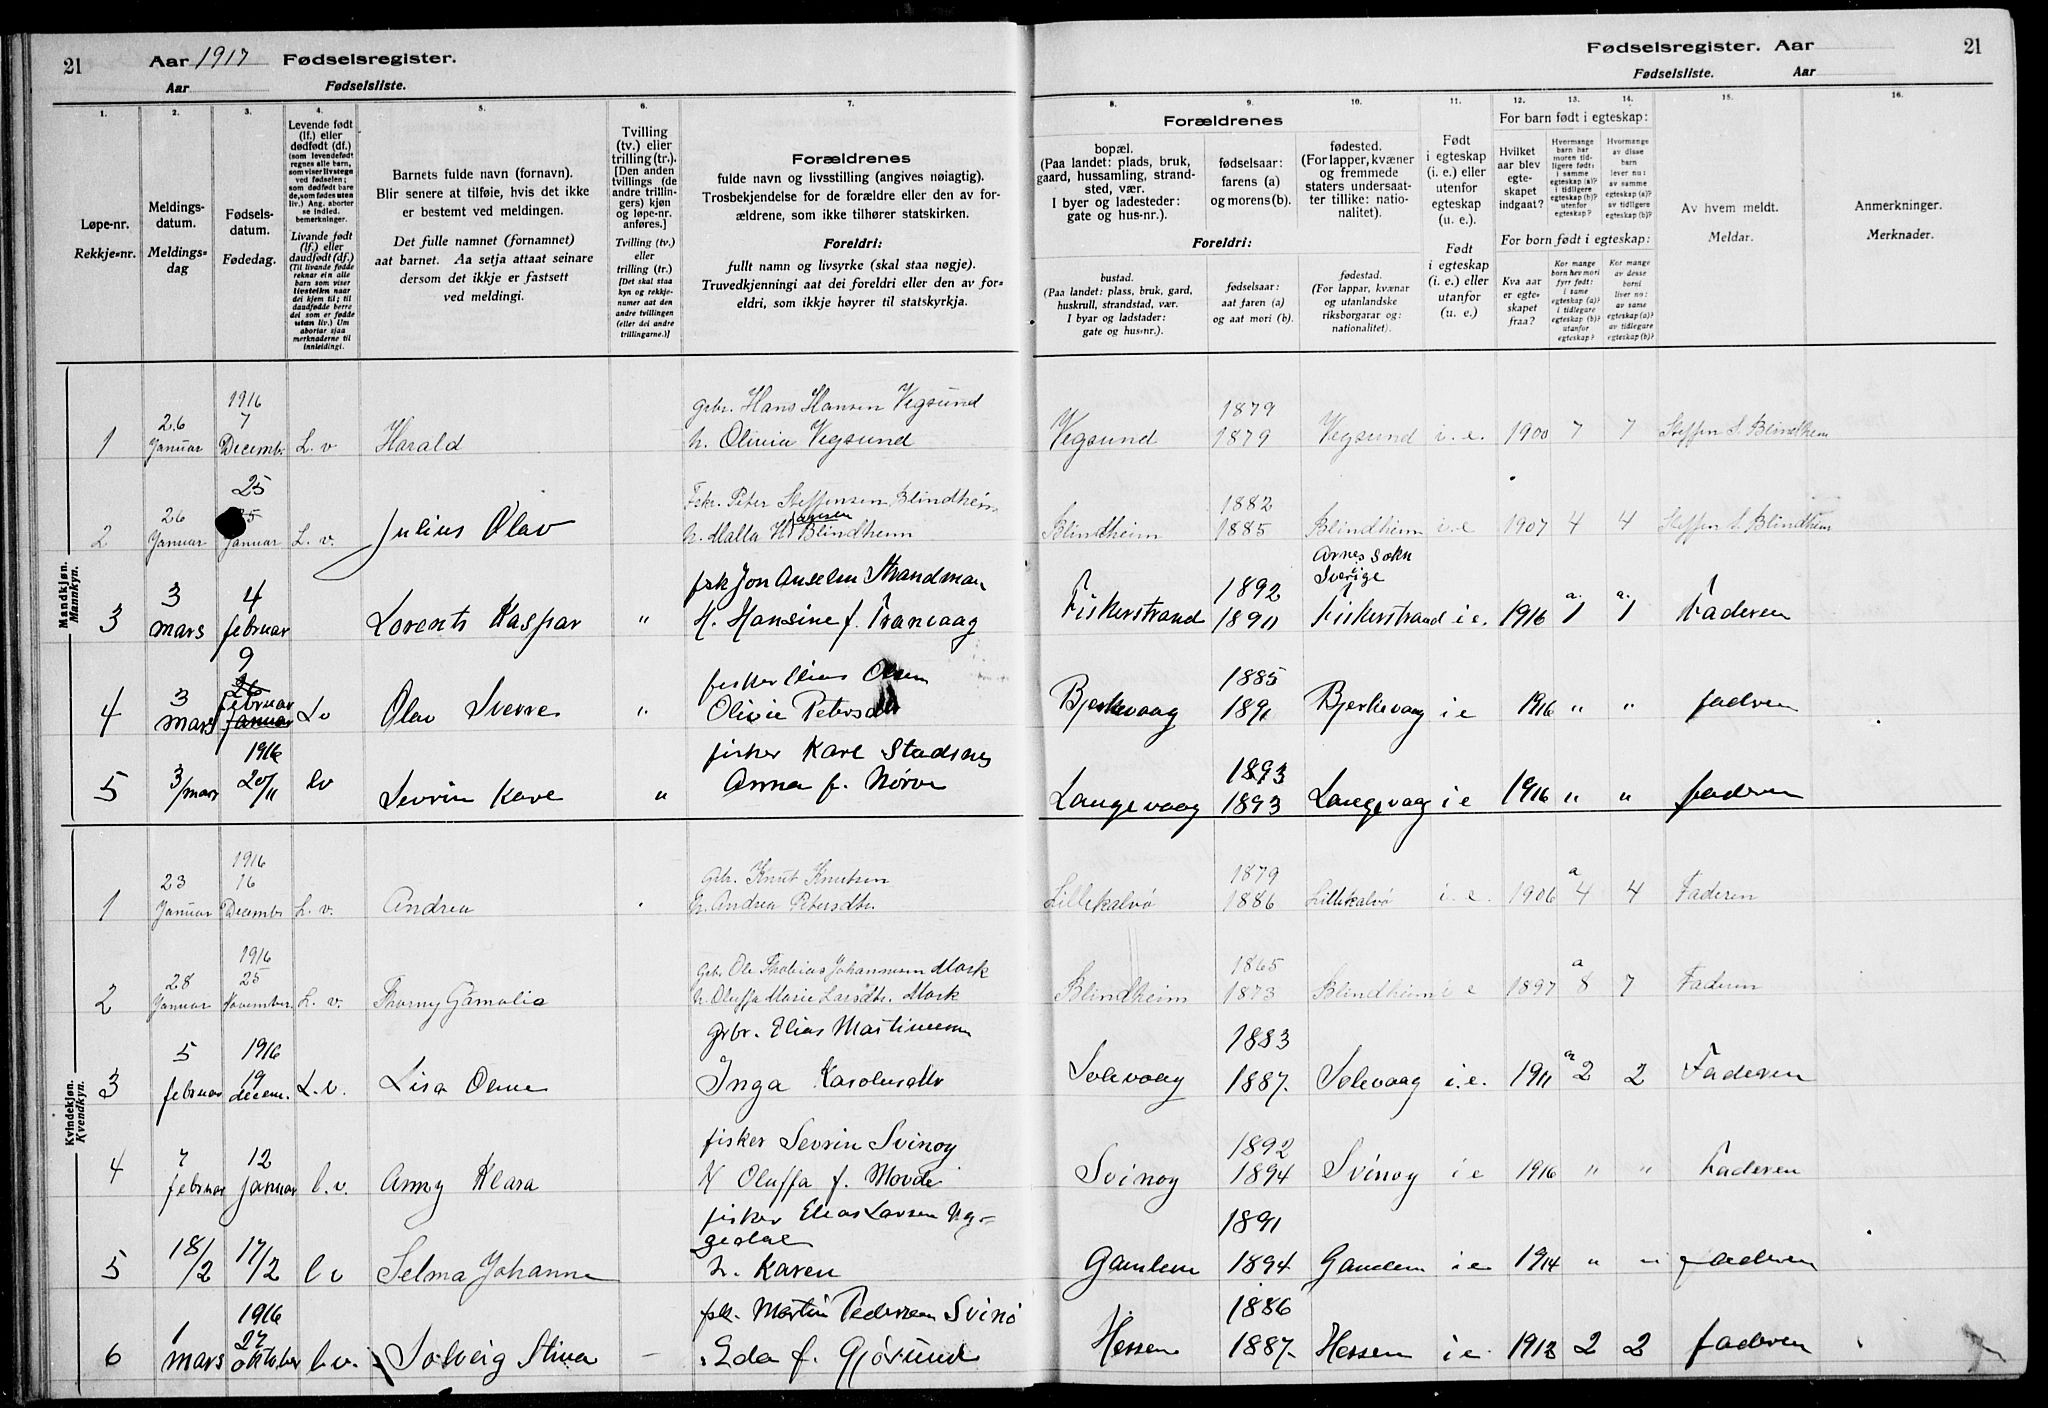 21 Aar 1917 Fødselsregister.
Aar Fødselsliste.
Fødselsregister. Aar 21
Fødselsliste. Aar
1. 2. 3. 4. 5. 6. 7. 8. 9. 10. 11. 12. 13. 14. 15. 16.
Løpe-nr.
Rekkje-nr.
Meldings-
datum.
Meldings-
dag
Fødsels-
datum.
Fødedag.
Levende født
(lf.) eller
dødfødt (df.)
(som levendefødt
regnes alle barn,
som viser livstegn
ved fødselen;
som dødfødt bare
de, som fødes uten
liv.) Ang. aborter
se indled.
bemerkninger.
Livande født
(lf.) eller
daudfødt (df.)
(Til livande fødde
reknar ein alle
barn som viser
livsteikn naar
dei kjem til; til
daudfødde berre
dei som er fødde
utan liv.) Um
abortar sjaa
merknaderne til
innleidingi.
Barnets fulde navn (fornavn).
Blir senere at tilføie, hvis det ikke
er bestemt ved meldingen.
Det fulle namnet (fornamnet)
aat barnet. Aa setja attaat seinare
dersom det ikkje er fastsett
ved meldingi.
Tvilling
(tv.) eller
trilling (tr.).
[Den anden
tvillings (de
andre trillin-
gers) kjøn
og løpe-nr.
anføres.]
Tvilling (tv.)
eller
trilling (tr.)
[Det skal staa
kyn og rekkje-
numer aat den
andre tvillingen
(eller dei andre
trillingarne.)]
Forældrenes
fulde navn og livsstilling (angives nøiagtig).
Trosbekjendelse for de forældre eller den av for-
ældrene, som ikke tilhører statskirken.
Foreldri:
fullt namn og livsyrke (skal staa nøgje).
Truvedkjenningi aat dei foreldri eller den av for-
eldri, som ikkje høyrer til statskyrkja.
Forældrenes
bopæl.
(Paa landet: plads, bruk,
gaard, hussamling, strand-
sted, vær.
I byer og ladesteder:
gate og hus-nr.).
fødselsaar:
farens (a)
og morens (b).
fødested.
(For lapper, kvæner
og fremmede
staters undersaat-
ter tillike: natio-
nalitet).
Foreldri:
bustad.
(Paa landet: plass, bruk, gard,
huskrull, strandstad, vær.
I byar og ladstader:
gate og hus-nr.).
fødselsaar:
aat faren (a)
og aat mori (b).
fødestad.
(For lappar, kvænar
og utanlandske
riksborgarar og:
nationalitet).
Født
i egteskap
(i. e.) eller
utenfor
egteskap
(u. e.).
Født
i egteskap
(i. e.) eller
utanfor
(u. e.)
For barn født i egteskap:
Hvilket
aar blev
egte-
skapet
indgaat?
Hvormange
barn har
moren tid-
ligere født:
i samme
egteskap (a)?
i tidligere
egteskap (b)?
utenfor
egteskap?
Hvormange
av disse
barn
lever nu:
av samme
egteskap (a)?
av tidligere
egteskap (b)?
For born født i egteskap:
Kva aar
er egte-
skapet
fraa?
Kor mange
born hev mori
fyrr født:
i same
egteskap (a)?
i tidlegare
egteskap (b)?
utanfor
egteskap?
Kor mange
av desse
borni
liver no:
av same
egteskap (a)?
av tidlegare
egteskap (b)?
Av hvem meldt.
Meldar.
Anmerkninger.
Merknader.
Mandkjøn.
Mannkyn.
1 26 Januar 1916 7 Decembr L. v Harald Gbr. Hans Hansen Vegsund
h. Olivia Vegsund Vegsund 1879 1879 Vegsund i. e. 1900 7 7 Steffen S. Blindheim
2 26 Januar 25 Januar L. v. Julius Olav Fskr. Peter Steffensen Blindheim
h. Malta Hansen Blindheim Blindheim 1882 1885 Blindheim i. e 1907 4 4 Steffen S. Blindheim
3 3 mars 4 februar Lorents Kaspar " fsk Jon Anselm Strandman
H. Hansine f. Tranvaag Fiskerstrand 1892 1891 Arnes Sokn Sverige Fiskerstrand i e. 1916 a. 1 a. 1 Faderen
4 3 mars 9 februar Lv Olav Sverre " fisker Elias Olsen
Olivie Petersdtr Bjerkevaag 1885 1891 Bjerkevaag i e 1916 " " fadren
5 3/mars 1916 20/11 lv Sevrin Kare " fisker Kare Stadsnes
Anna f. Nørve Langevaag 1893 1893 Langevaag i e 1916 " " faderen
Kvindekjøn.
Kvendkyn.
1 23 Januar 1916 16 Decembr L. v. Andrea Gbr. Knut Knutsen
h. Andrea Petersdtr. Lillekalvø 1879 1886 Lillekalvø i. e. 1906 a 4 4 Faderen
2 28 Januar 1916 25 November L. v. Thorny Gamalia Gbr. Ole Thobias Johannesen Mork
h. Oluffa Marie Larsdtr. Mork Blindheim 1865 1873 Blindheim i e 1897 a 8 7 Faderen
3 5 februar 1916 19 decem. L. v. Lisa Oline grbr. Elias Martinussen
Inga Karolusdtr Solevaag 1883 1887. Solevaag i. e. 1911 a 2 2 Faderen
4 7 februar 12 januar l. v. Anny Klara fisker Sevrin Svinøy
H Oluffa f. Movde Svinoy 1892 1894 Svinoy i e 1916 " " Faderen
5 18/2 17/2 l v Selma Johanne fisker Elias Larsen
h. Karen Gamlem 1891 1894 Gamlem i e 1914 " " faderen
6 1 mars 1916 27 oktober l v. Solveig Stina — fsk. Martin Pedersen Svinø
Eda f. Gjøsund Hessen 1886 1887. Hessen i e. 1913 2 2 faderen